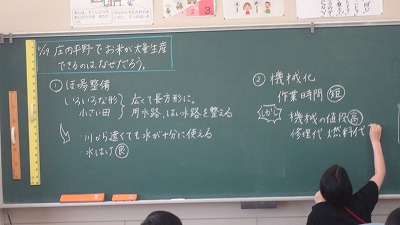 5/17 庄の平野でお米が大量生産
できるのはなぜだろう。
① ほ場整備
いろいろな形
小さい田
広くて長方形に。
用水路、はい水路を整える
・川から遠くても水が十分に使える
水はけ 良
② 機械化
作業時間 短
しかし
機械の値段 高
修理代 燃料代